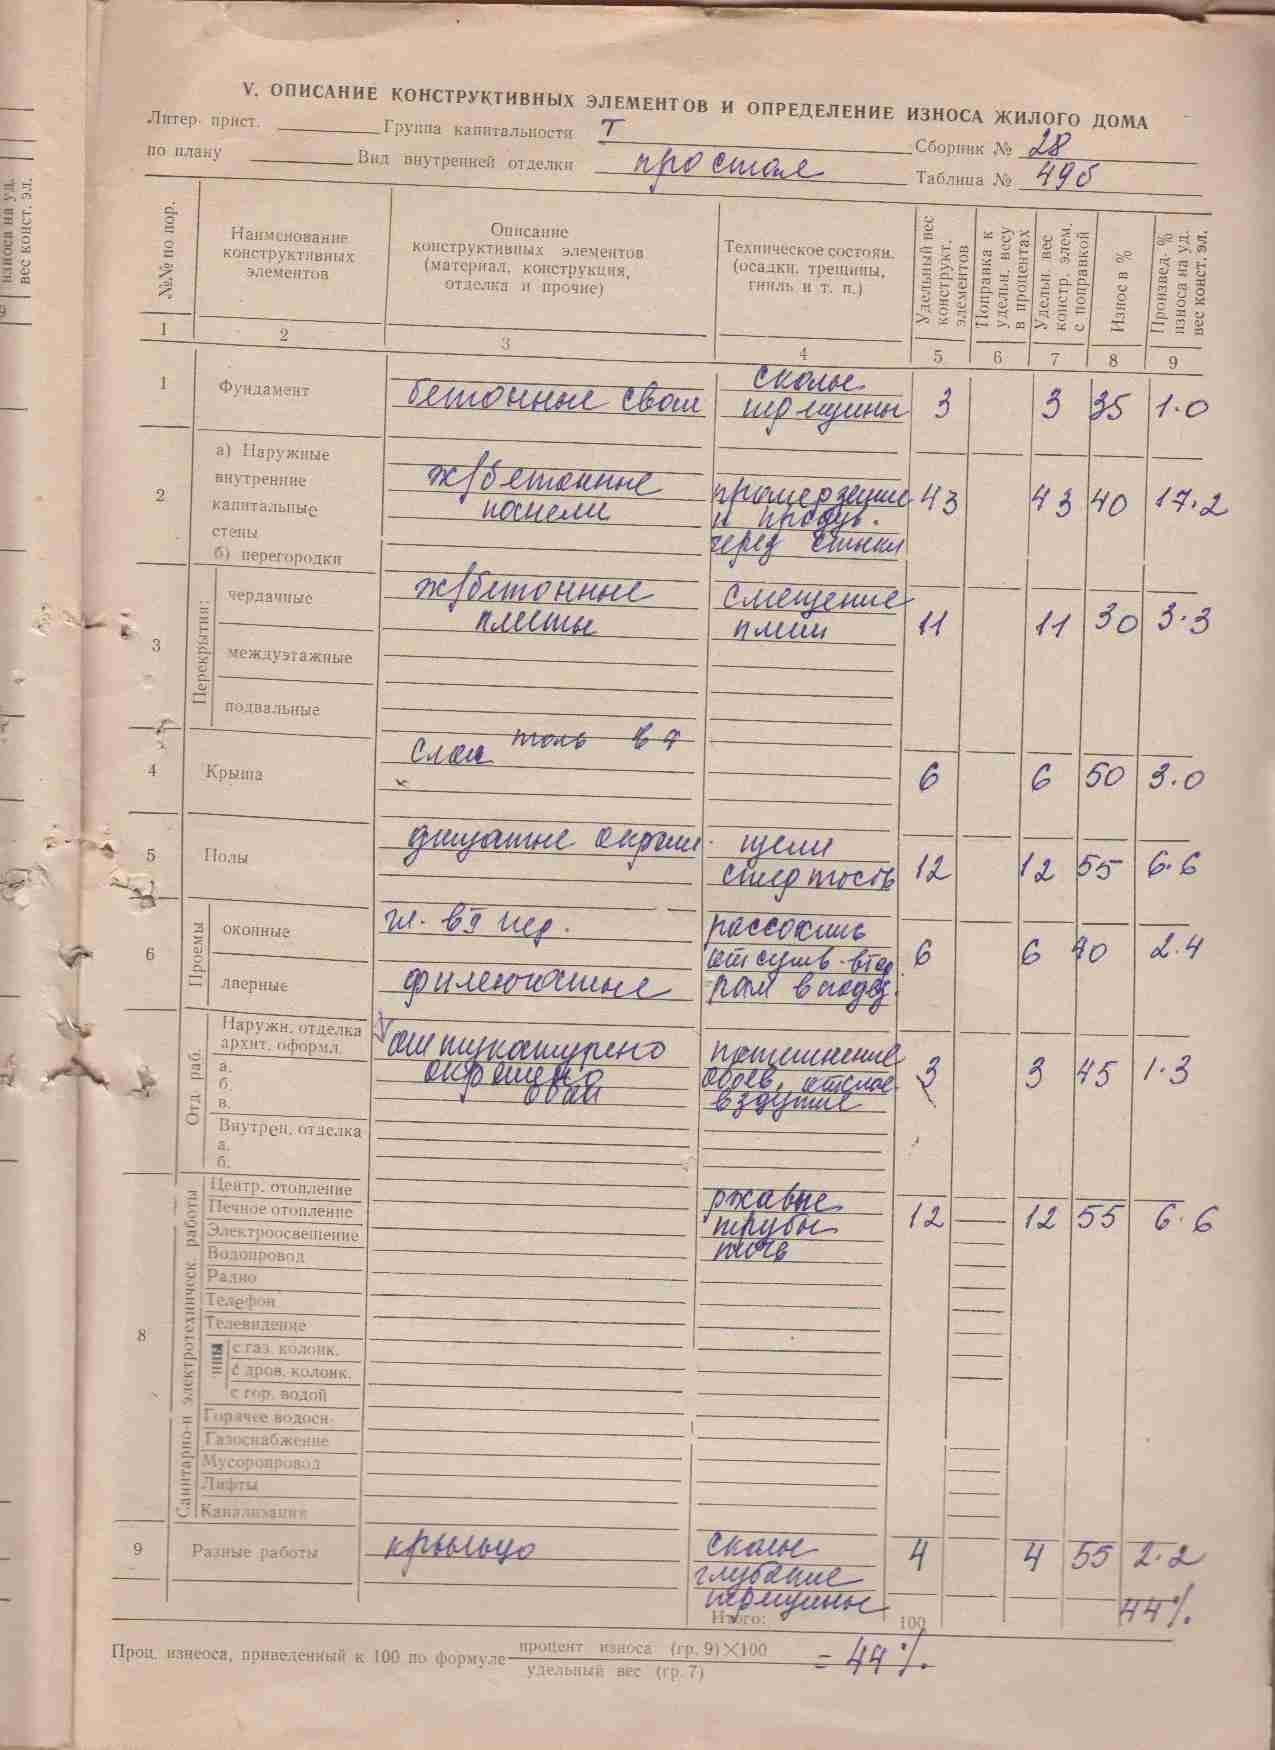 V. ОПИСАНИЕ КОНСТРУКТИВНЫХ ЭЛЕМЕНТОВ И ОПРЕДЕЛЕНИЕ ИЗНОСА ЖИЛОГО ДОМА
Литер. прист. Группа капитальности Т Сборник № 28
по плану Вид внутренней отделки простая Таблица № 49б
износа на уд.
вес конст. эл.
9
№№ по пор.
Наименование
конструктивных
элементов
Описание
конструктивных элементов
(материал, конструкция,
отделка и прочие)
Техническое состоян.
(осадки, трещины,
гниль и т. п.)
Удельный вес
конструкт.
элементов
Поправка к
удельн. весу
в процентах
Удельн. вес
констр. элем.
с поправкой
Износ в %
Произвед. %
износа на уд.
вес конст. эл.
1 2 3 4 5 6 7 8 9
1 Фундамент бетонные сваи сколы трещины 3 3 35 1.0
2 а) Наружные
внутренние
капитальные
стены
б) перегородки
ж/бетонные
панели
промерзание
и продув.
через стыки
43 43 40 17.2
3 Перекрытия:
чердачные
междуэтажные
подвальные
ж/бетонные
плиты
смещение
плит
11 11 30 3.3
4 Крыша
толь
6 6 50 3.0
5 Полы дощатые окраш. щели
стертость
12 12 55 6.6
6 Проемы
оконные
дверные
филенчатые
рассохлись
отсутв. втор
рам в подъез.
6 6 40 2.4
Отд. раб.
Наружн. отделка
архит. оформл.
а.
б.
в.
Внутрен. отделка
а.
б.
оштукатурено
окрашено
обои
потемнение
обоев, отслое
вздутие
3 3 45 1.3
8 Санитарно-и электротехническ. работы
Центр. отопление
Печное отопление
Электроосвещение
Водопровод
Радио
Телефон
Телевидение
с газ. колонк.
с дров. колонк.
с гор. водой
Горячее водосн.
Газоснабжение
Мусоропровод
Лифты
Канализация
ржавые
трубы
течь
12 12 55 6.6
9 Разные работы крыльцо сколы
глубокие
трещины
4 4 55 2.2
44%
Итого: 100
Проц. изнеоса, приведенный к 100 по формуле
процент износа (гр. 9)×100
удельный вес (гр. 7)
= 44%.